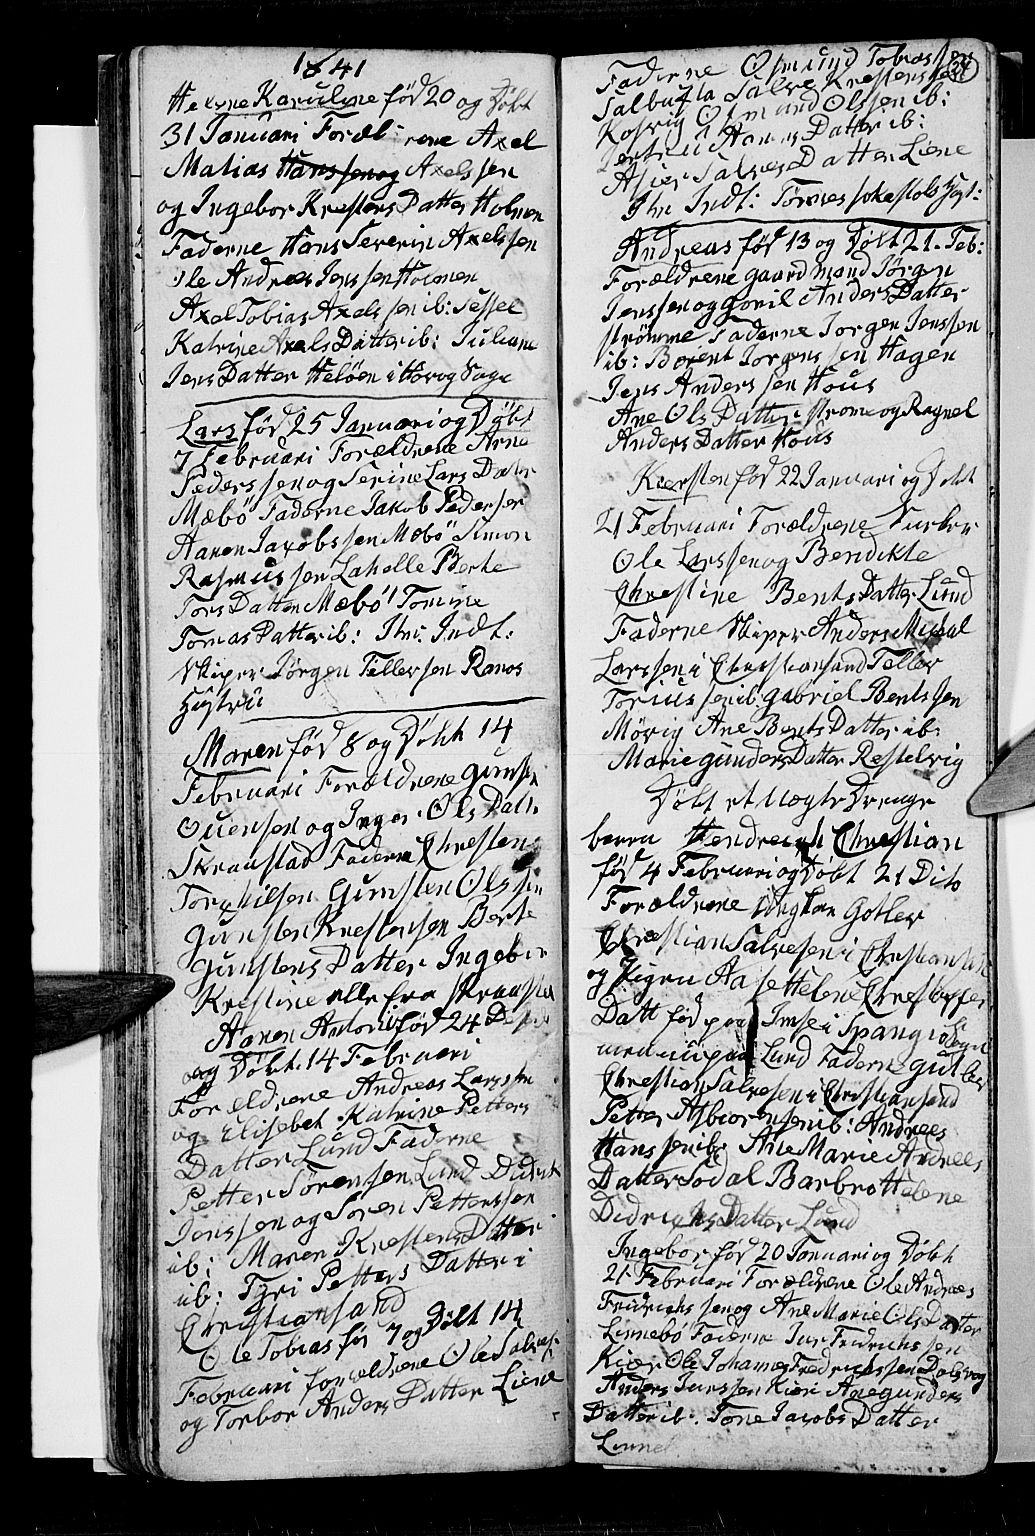 1841
Helene Karuline fød 20 og Døbt
31 Januari Foræl-rene Axel
Matias Hanssen og Axelssen
og Ingebor Krestens Datter Holmen
Faderne Hans Severin Axelssen
Ole Andreas Jenssen Holmen
Axel Tobias Axelssen ib: Sessel
Katrine Axels Datter ib: Juliane
Jens Datter Heløen i Sogn
Lars fød 25 Januari og Døbt
7 Februari Forældrene Arne
Pederssen og Serine Lars Dater
Mæbø Faderne Jakob Pedersen
Aanen Jacobssen Mæbø Simon
Rasmussen Lahelle Berte
Tors Datter Mæbø Tomine
Tomas Datter ib: Ihr: Indt:
Skiper Jørgen Tellersen Ranos
Hustru
Maren fød 8 og Døbt 14
Februari Forældrene Gunst
Ouensen og Inger Ols Datt
Skraastad Faderne Chresten
Torkilsen Gunsten Olssen
Gunsten Krestensen Berte
Gunstens Datter Ingebor
Krestine alle fra Skraastad
Aanen Antoni fød 24 De
og Døbt 14 Februari
Forældrene Andreas Larssen
og Elisebet Katrine Petters
Datter Lund Faderne
Petter Sørensen Lund Didrik
Jenssen og Søren Petterssen
ib: Maren Krestens Datter
ib: Tyri Petters Datter i
Christiansand
Ole Tobias fø 7 og Døbt 14
Februari forældrene Ole Salves
og Torbor Anders Datter Liene
Faderne Osmund Tobias
Salve Krestenssen
Kosvig Osmund Olssen ib:
Jertru Aanens Datter ib:
Asier Salves Datter Liene
Ihr Indt: Tomes
Andreas fød 13 og Døbt 21. Feb:
Forældrene gaardmand Jørgen
Jenssen og Goril Anders Datter
strømme Faderne Jorgen Jenssen
ib: Borent Jorgenssen Hagen
Jens Anderssen Hous
Ane Ols Datter strome og Ragnel
Anders Datter Hous
Kiersten fød 22 Januari og Døbt
21 Februari Forældrene
Ole Larssen og Bendikte
Chrestine Bents Datter Lund
Faderne Skiper Anders Mickal
Larssen i Chrestiansand Teller
Toriussen ib: Gabriel Bentssen
Møvig Ane Bents Datter ib:
Marie gunders Datter Restelvig
Døbt et Uægte Drenge
barn Hendreich Chrestian
fød 4 Februari og Døbt 21 Dito
Forældrene Gotler
Chrestian Salvesen i Chrestiansan
og Pigen Aase Helene Chrestoffer
Datt fød paa Imse i Spangreid Sogn
nu paa Lund Faderne gulber
Chrestian Salvesen i Christiansand
Petter Asbiørensen ib: Andreas
Hanssen ib: Ane Marie Andreas
Datter Sødal Barbro Helene
Didrichs Datter Lund
Ingebor fød 20 Januari og Døbt
21 Februari Forældrene Ole Andreas
Fridrichssen og Ane Marie Ols Datter
Linnebø Faderne Jur Fridrichssen
Kier Ole Johannes Fredrichssen Dalsvog
Anders Jurssen Kier Ane gunders
Datter ib. Tone Jacobs Datter